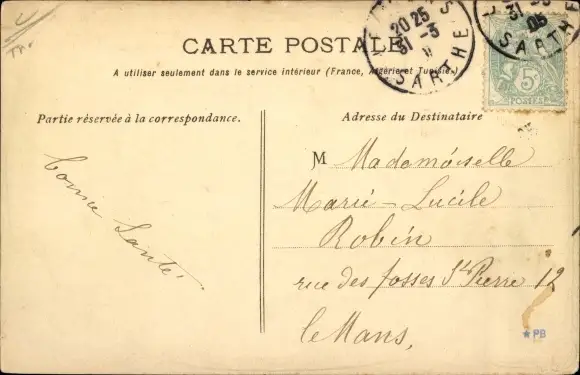 CARTE POSTALE
A utiliser seulement dans le service intérieur (France, Algérie et Tunisie.)
20 25
31 -3
SARTHE
31
05
SARTHE
5c
POSTES
Partie réservée à la correspondance.
Adresse du Destinataire
Bonne Santé.
M Mademoiselle
Marie-Lucile
Robin
rue des fosses St Pierre 12
le Mans,
★PB